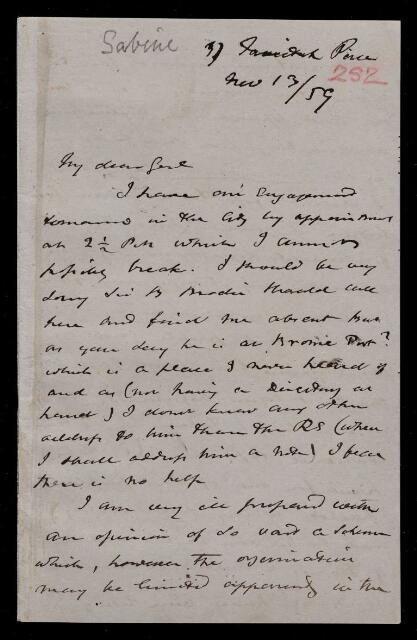 Sabine
37 Tavistock Place
282
Nov 13/59
My dear Genl
I have an engagement
tomorrow in the City by appointment
at 2½ PM which I cannot
possibly break. I should be very
sorry Sir B Brodie should call
here and find me absent but
as you say he is at Brome Port?
which is a place I never heard of
and as (not having a Directory at
hand) I do not know any other
address to him than the RS (where
I shall address him a note) I fear
there is no help
I am very ill prepared with
an opinion of so vast a scheme
which, however the organization
may be limited apparently in the